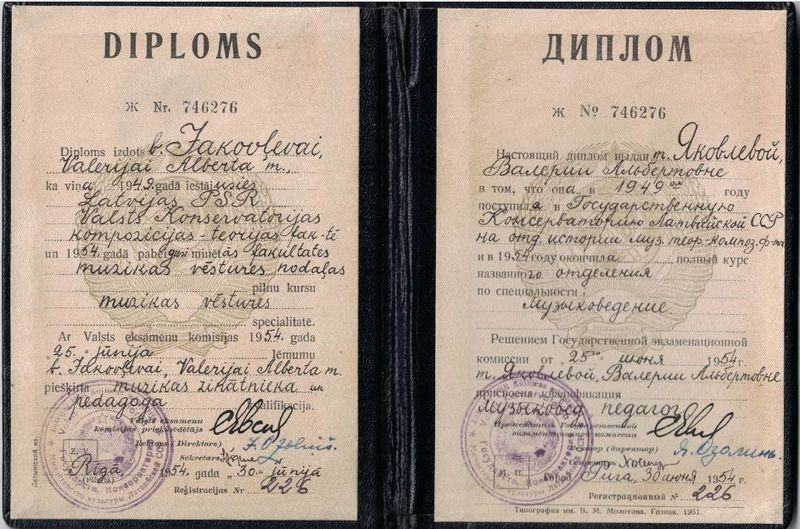 DIPLOMS
Ж Nr. 746276
Diploms izdots b. Jakovļevai,
Valerijai Alberta m.,
ka viņa 1949. gadā iestājusies
Latvijas PSR
Valsts Konservatorijas
kompozīcijas-teorijas fak-tē
un 1954. gadā pabeigusi minētās fakultates
muzikas vēstures nodaļas
pilnu kursu
muzikas vēstures
specialitatē.
Ar Valsts eksamenu komisijas 1954. gada
"25." jūnija lēmumu
b. Jakovļevai, Valerijai Alberta m.
piešķirta muzikas zinātnieka un
pedagoga kvalifikacija.
Valsts eksamenu
komisijas priekšsēdētājs
Rektors (Direktors)
Sekretars
Z. v.
Rīga, 1954. gada "30" jūnijā
(Pilsēta)
Reģistracijas Nr 226
ДИПЛОМ
Ж № 746276
Настоящий диплом выдан т. Яковлевой,
Валерии Альбертовне
в том, что она в 1949 ом году
поступила в Государственную
Консерваторию Латвийской ССР
на отд. истории муз. теор.-композ. ф-та
и в 1954 году окончила полный курс
названного отделения
по специальности
Музыковедение.
Решением Государственной экзаменационной
комиссии от "25 го" июня 1954 г.
т. Яковлевой, Валерии Альбертовне
присвоена квалификация
Музыковед педагог
Председатель Государственной
экзаменационной комиссии
Директор
М. П.
Город Рига, 30 июня 1954 г.
Регистрационный № 226
Типография им. В. М. Молотова. Гознак. 1951.